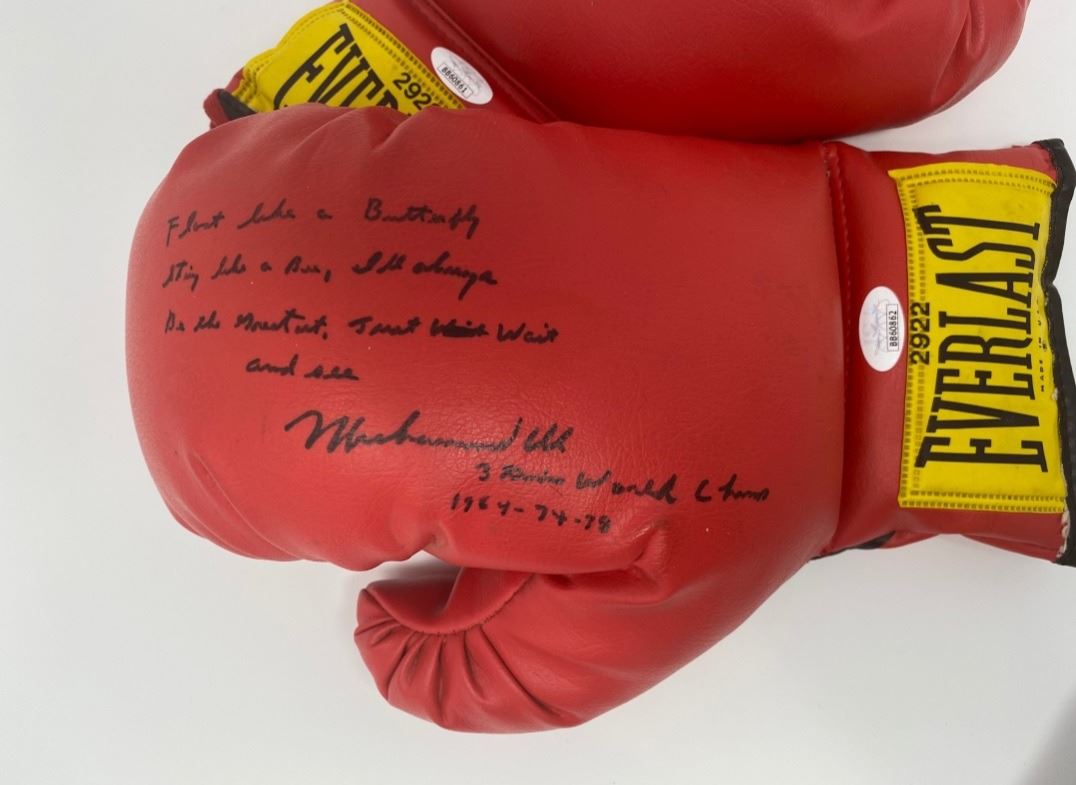 EVERLAST
292
BB60861
Float like a Butterfly
Sting like a Bee, I'll always
Be the Greatest, Just Wait Wait
and see
Muhammad Ali
3 Time World Champ
1964-74-78
BB60862
2922
EVERLAST
MADE IN U.S.A.